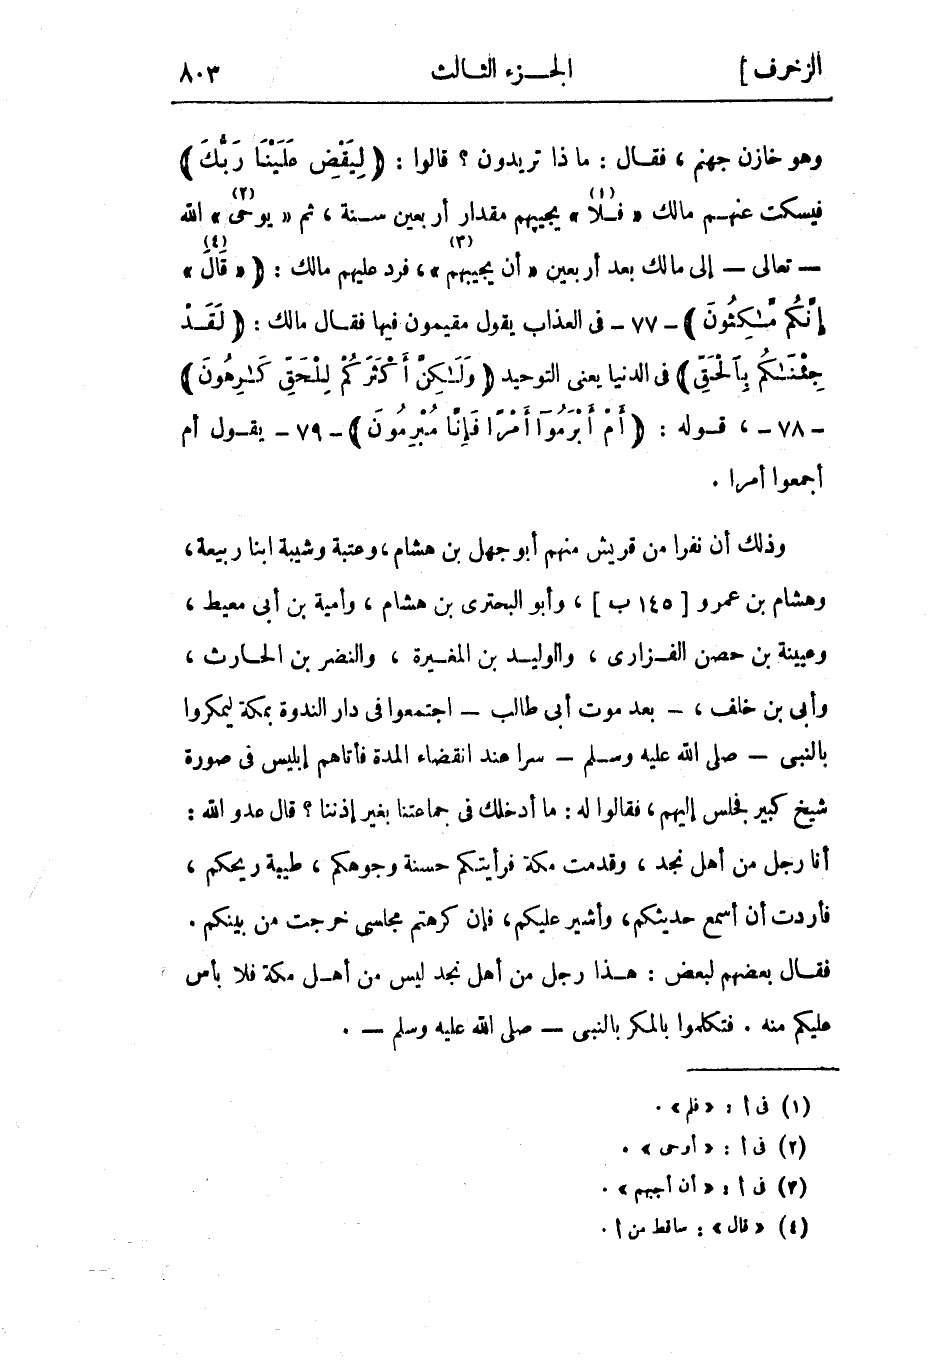 الزخرف]
الجزء الثالث
٨٠٣
وهو خازن جهنم ، فقال : ما ذا تريدون ؟ قالوا : ( لِيَقْضِ عَلَيْنَا رَبُّكَ )
فيسكت عنهم مالك « فلا » (١) يجيبهم مقدار أربعين سنة ، ثم « يوحى » (٢) الله
— تعالى — إلى مالك بعد أربعين « أن يجيبهم » (٣) ، فرد عليهم مالك : ( « قَالَ » (٤)
إِنَّكُم مَّٰكِثُونَ ) - ٧٧ - فى العذاب يقول مقيمون فيها فقال مالك : ( لَقَدْ
جِئْنَٰكُم بِٱلْحَقِّ ) فى الدنيا يعنى التوحيد ( وَلَٰكِنَّ أَكْثَرَكُمْ لِلْحَقِّ كَٰرِهُونَ )
- ٧٨ - ، قوله : ( أَمْ أَبْرَمُوٓا أَمْرًا فَإِنَّا مُبْرِمُونَ ) - ٧٩ - يقول أم
أجمعوا أمرا .
وذلك أن نفرا من قريش منهم أبو جهل بن هشام ، وعتبة وشيبة ابنا ربيعة ،
وهشام بن عمرو [ ١٤٥ ب ] ، وأبو البحترى بن هشام ، وأمية بن أبى معيط ،
وعيينة بن حصن الفزارى ، والوليد بن المغيرة ، والنضر بن الحارث ،
وأبى بن خلف ، — بعد موت أبى طالب — اجتمعوا فى دار الندوة بمكة ليمكروا
بالنبى — صلى الله عليه وسلم — سرا عند انقضاء المدة فأتاهم إبليس فى صورة
شيخ كبير فجلس إليهم ، فقالوا له : ما أدخلك فى جماعتنا بغير إذننا ؟ قال عدو الله :
أنا رجل من أهل نجد ، وقدمت مكة فرأيتكم حسنة وجوهكم ، طيبة ريحكم ،
فأردت أن أسمع حديثكم ، وأشير عليكم ، فإن كرهتم مجلسى خرجت من بينكم .
فقال بعضهم لبعض : هذا رجل من أهل نجد ليس من أهل مكة فلا بأس
عليكم منه . فتكلموا بالمكر بالنبى — صلى الله عليه وسلم — .
(١) فى أ : « فلم » .
(٢) فى أ : « أوحى » .
(٣) فى أ : « أن أجبهم » .
(٤) « قال » : ساقط من أ .